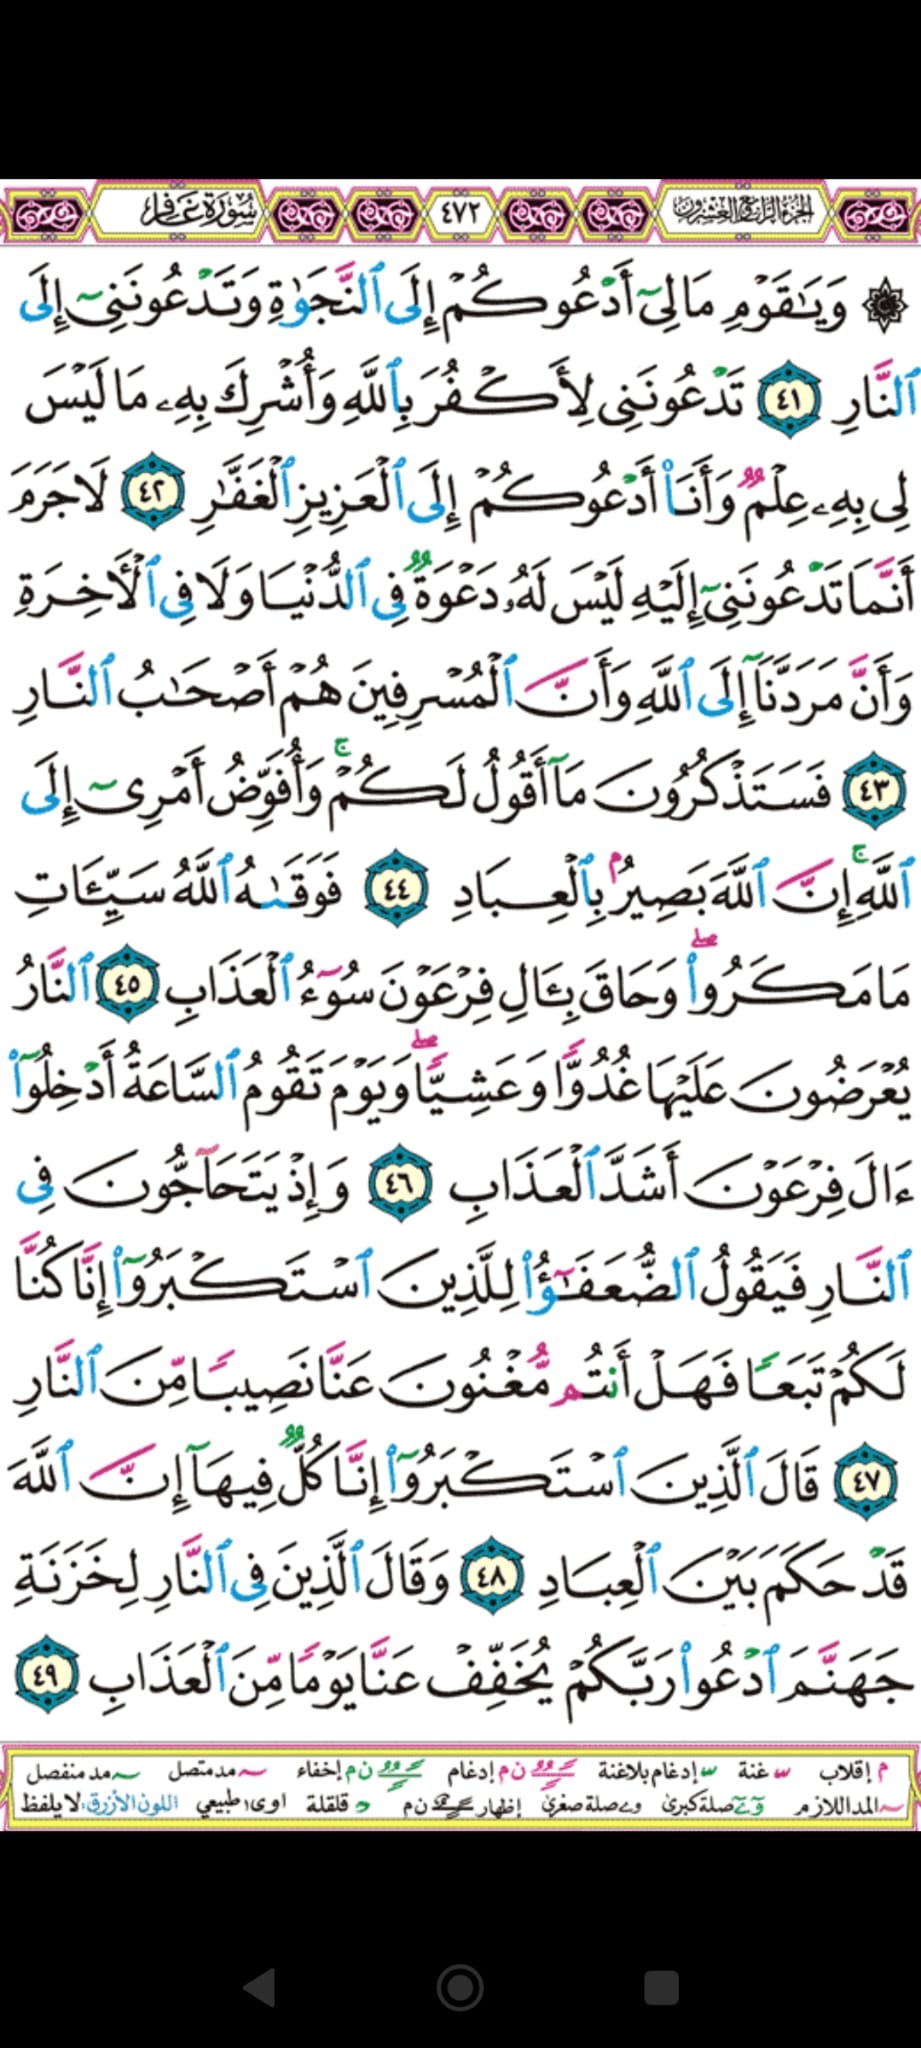 الجزء الرابع والعشرون ٤٧٢ سُورَةُ غَافِر
۞ وَيَٰقَوۡمِ مَا لِيٓ أَدۡعُوكُمۡ إِلَى ٱلنَّجَوٰةِ وَتَدۡعُونَنِيٓ إِلَى
ٱلنَّارِ ٤١ تَدۡعُونَنِي لِأَكۡفُرَ بِٱللَّهِ وَأُشۡرِكَ بِهِۦ مَا لَيۡسَ
لِي بِهِۦ عِلۡمٞ وَأَنَا۠ أَدۡعُوكُمۡ إِلَى ٱلۡعَزِيزِ ٱلۡغَفَّٰرِ ٤٢ لَا جَرَمَ
أَنَّمَا تَدۡعُونَنِيٓ إِلَيۡهِ لَيۡسَ لَهُۥ دَعۡوَةٞ فِي ٱلدُّنۡيَا وَلَا فِي ٱلۡأٓخِرَةِ
وَأَنَّ مَرَدَّنَآ إِلَى ٱللَّهِ وَأَنَّ ٱلۡمُسۡرِفِينَ هُمۡ أَصۡحَٰبُ ٱلنَّارِ
٤٣ فَسَتَذۡكُرُونَ مَآ أَقُولُ لَكُمۡۚ وَأُفَوِّضُ أَمۡرِيٓ إِلَى
ٱللَّهِۚ إِنَّ ٱللَّهَ بَصِيرُۢ بِٱلۡعِبَادِ ٤٤ فَوَقَىٰهُ ٱللَّهُ سَيِّـَٔاتِ
مَا مَكَرُواْۖ وَحَاقَ بِـَٔالِ فِرۡعَوۡنَ سُوٓءُ ٱلۡعَذَابِ ٤٥ ٱلنَّارُ
يُعۡرَضُونَ عَلَيۡهَا غُدُوّٗا وَعَشِيّٗاۖ وَيَوۡمَ تَقُومُ ٱلسَّاعَةُ أَدۡخِلُوٓاْ
ءَالَ فِرۡعَوۡنَ أَشَدَّ ٱلۡعَذَابِ ٤٦ وَإِذۡ يَتَحَآجُّونَ فِي
ٱلنَّارِ فَيَقُولُ ٱلضُّعَفَٰٓؤُاْ لِلَّذِينَ ٱسۡتَكۡبَرُوٓاْ إِنَّا كُنَّا
لَكُمۡ تَبَعٗا فَهَلۡ أَنتُم مُّغۡنُونَ عَنَّا نَصِيبٗا مِّنَ ٱلنَّارِ
٤٧ قَالَ ٱلَّذِينَ ٱسۡتَكۡبَرُوٓاْ إِنَّا كُلّٞ فِيهَآ إِنَّ ٱللَّهَ
قَدۡ حَكَمَ بَيۡنَ ٱلۡعِبَادِ ٤٨ وَقَالَ ٱلَّذِينَ فِي ٱلنَّارِ لِخَزَنَةِ
جَهَنَّمَ ٱدۡعُواْ رَبَّكُمۡ يُخَفِّفۡ عَنَّا يَوۡمٗا مِّنَ ٱلۡعَذَابِ ٤٩
م إقلاب غنة إدغام بلاغنة ن م إدغام ن م إخفاء مد متصل مد منفصل
المد اللازم صلة كبرى و ے صلة صغرى إظهار ن م قلقلة اوى؛ طبيعي اللون الأزرق: لا يلفظ